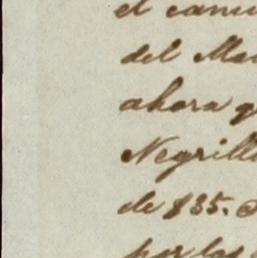 el cami
del Ma
ahora q
Negrill
de 835.
por los